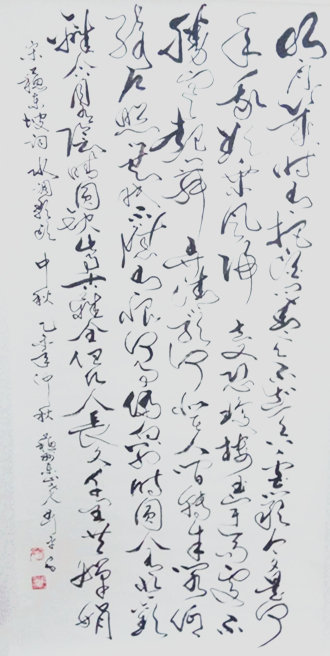 明月幾時有把酒問青天不知天上宮闕今夕是何
年我欲乘風歸去又恐瓊樓玉宇高處不
勝寒起舞弄清影何似在人間轉朱閣低
綺户照無眠不應有恨何事偏向别時圓人有悲歡
離合月有陰晴圓缺此事古難全但願人長久千里共嬋娟
宋蘇東坡詞水調歌頭中秋乙未年仲秋